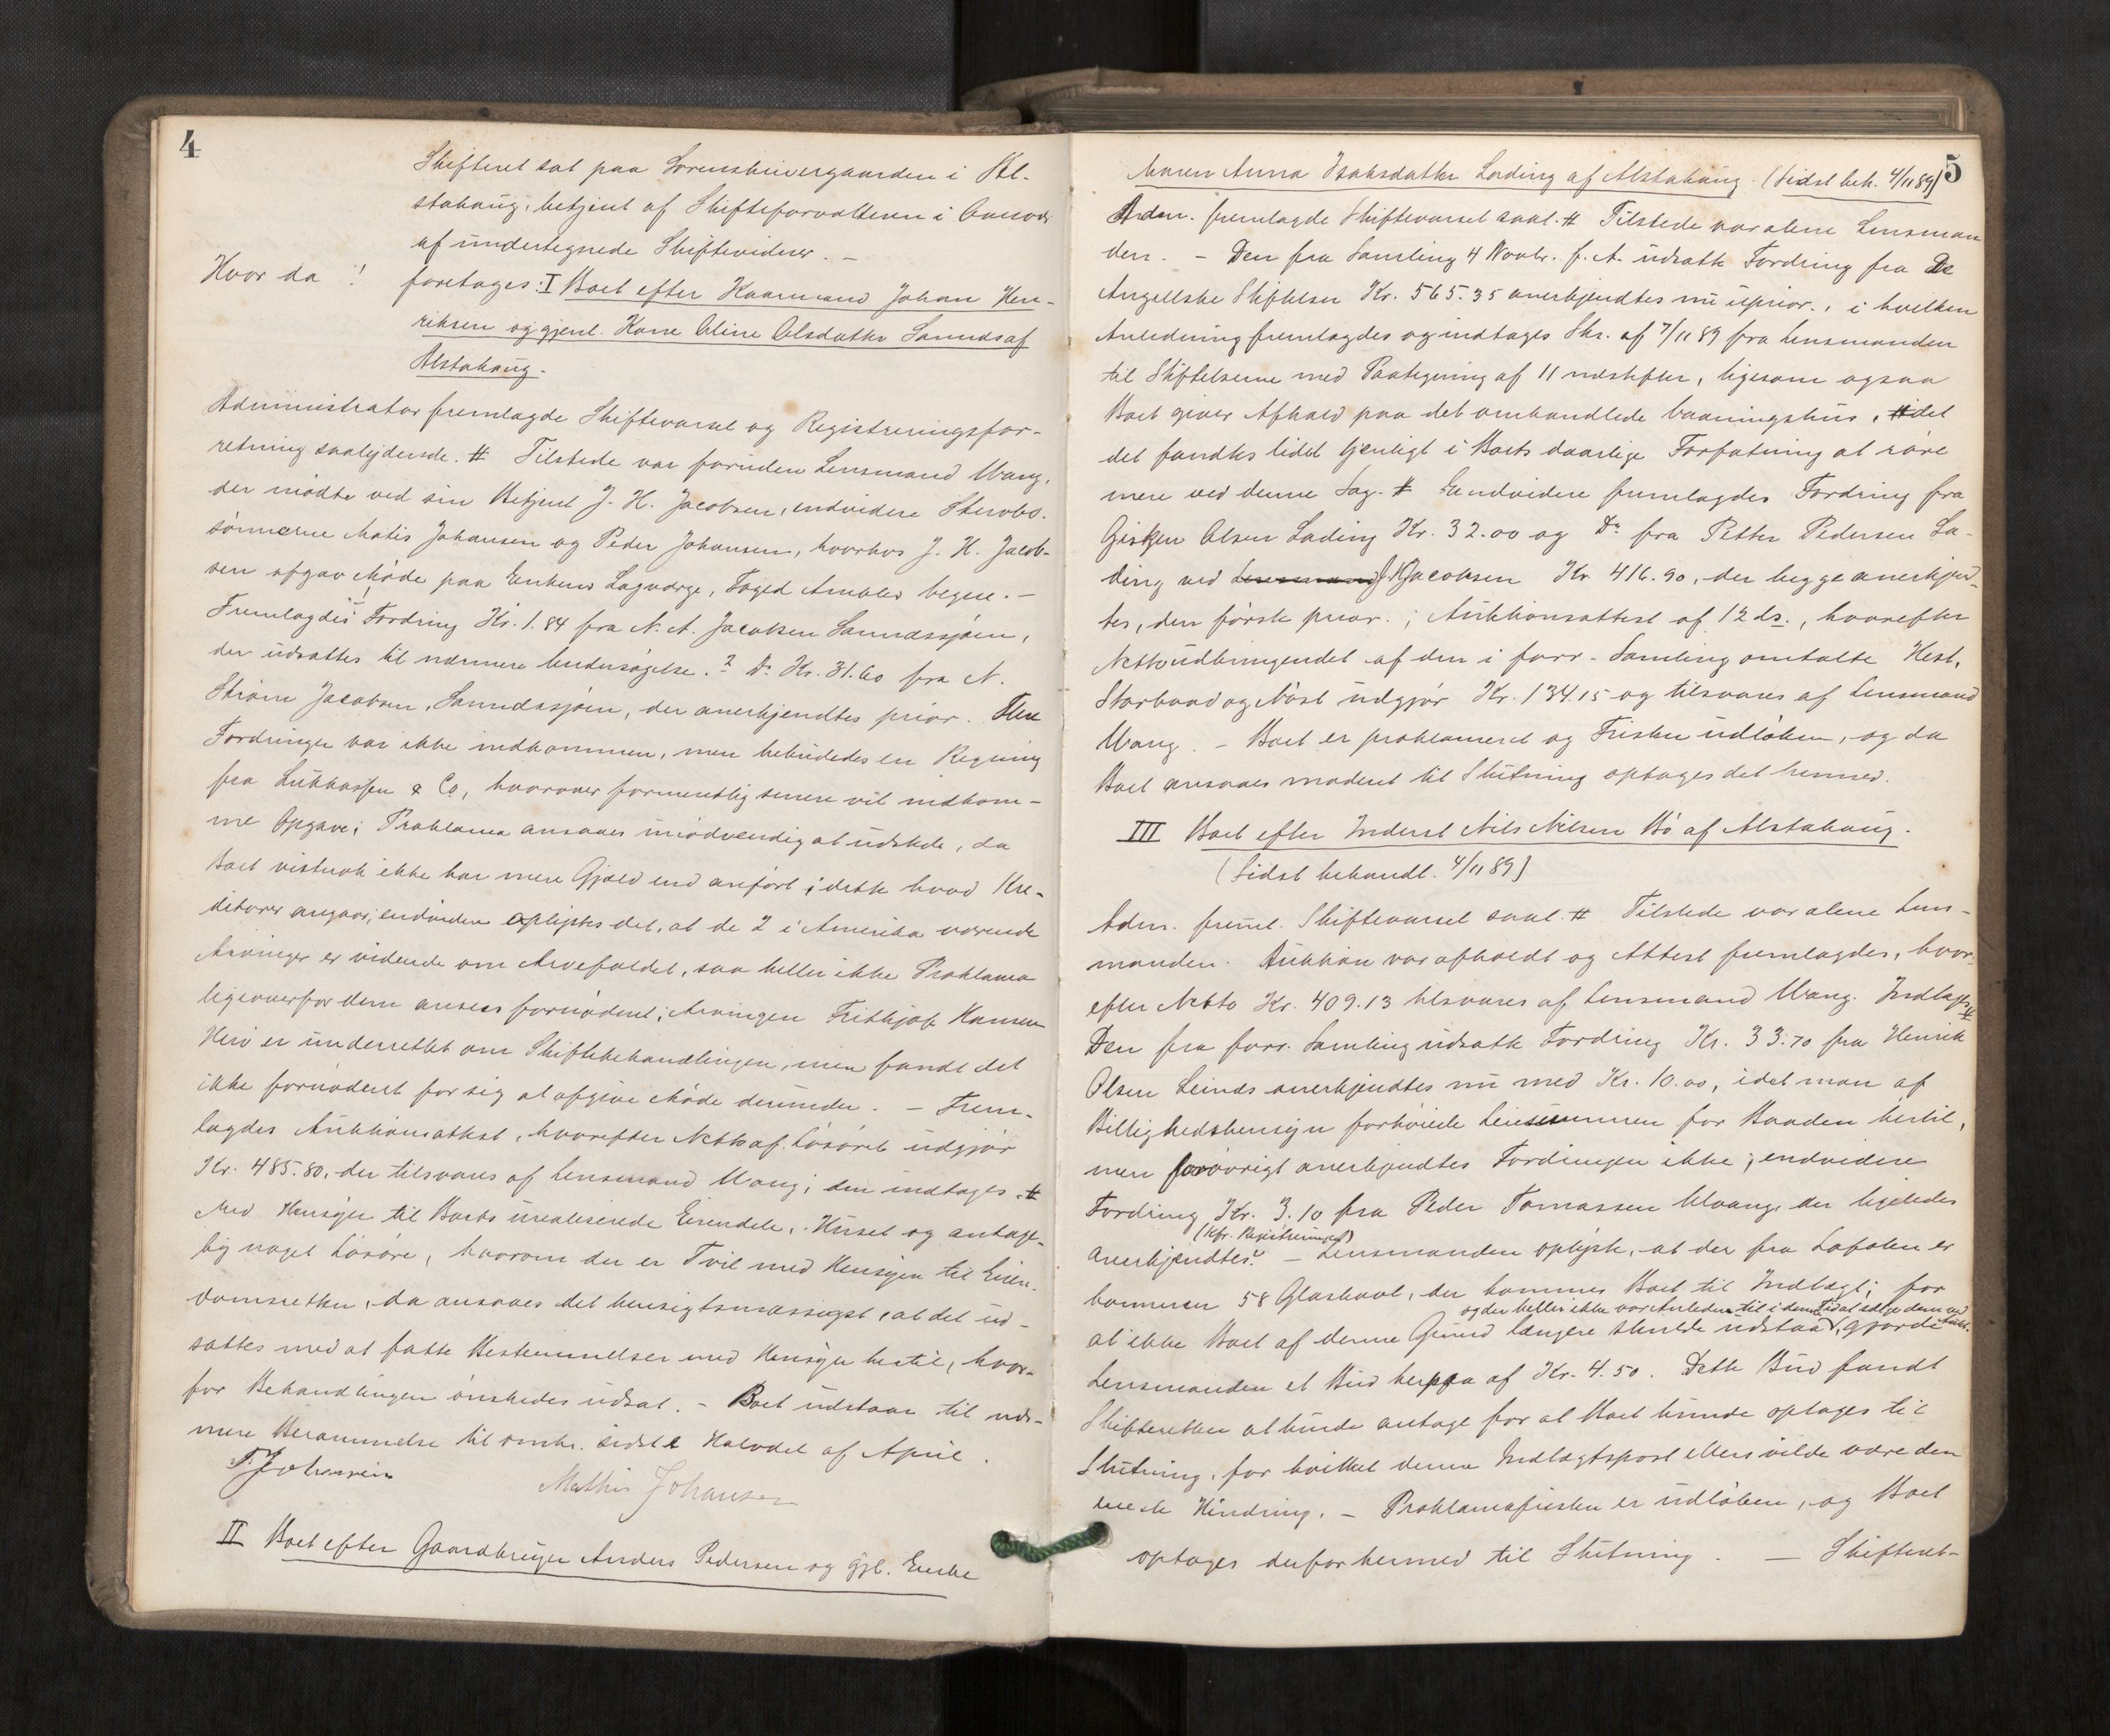 4
Skifteret sat paa Sorenskrivergaarden i Al-
stahaug, betjent af Skifteforvalteren i Overvær
af undertegnede Skiftevidner. —
Hvor da !
foretages: I Boet efter Kaarmand Johan Hen-
riksen og gjenl. Kone Oline Olsdatter Sannes af
Alstahaug.
Administrator fremlagde Skiftevarsel og Registreringsfor-
retning saalydende. # Tilstede var foruden Lensmand Wang,
der mødte ved sin Betjent J. H. Jacobsen, endvidere Stervbo-
sønnerne Matis Johansen og Peder Johansen, hvorhos J. H. Jacob-
sen afgav Møde paa Enkens Lagværge, Foged vegne. —
Fremlagdes Fordring Kr. 1.84 fra N. A. Jacobsen Sannessjøen,
der udsattes til nærmere Undersøgelse. ? Do Kr. 31.60 fra N.
Strøm Jacobsen, Sannessjøen, der anerkjendtes prior. Flere
Fordringer var ikke indkommen, men bebudedes en Regning
fra Lukkassen & Co, hvorover formentlig senere vil indkom-
me Opgave; Proklama ansaaes unødvendig at udstede, da
Boet vistnok ikke har mere Gjæld end anført i dette hvad Kre-
ditorer angaar; endvidere oplystes det, at de 2 i Amerika værende
Arvinger er vidende om Arvefaldet, saa heller ikke Proklama
ligeoverfor dem ansees fornødent; Arvingen Frithjof Hansen
Herø er underrettet om Skiftebehandlingen, men fandt det
ikke fornødent for sig at afgive Møde derunder. — Frem-
lagdes Auktionsattest, hvorefter Netto af Løsøret udgjør
Kr. 485.80, der tilsvares af Lensmand Wang; den indtages. #
Med Hensyn til Boets urealiserede Eiendele, Huset og antage-
lig noget Løsøre, hvorom der er Tvil med Hensyn til Eien-
domsretten, da ansaaes det hensigtsmæssigst, at det ud-
sattes med at fatte Bestemmelser med Hensyn hertil, hvor-
for Behandlingen ønskedes udsat. — Boet udstaar til nær-
mere Berammelse til omtr. sidste Halvdel af April.
P. Johansen
Mathis Johansen
II Boet efter Gaardbruger Anders Pedersen og gjl. Enke
5
Maren Anna Isaksdatter Lading af Alstahaug. (Sidst beh. 4/11 89)
Adm. fremlagde Skiftevarsel saal. # Tilstede var alene Lensman
den. — Den fra Samling 4 Novbr. f. A. udsatte Fordring fra De
Angellske Stiftelser Kr. 565.35 anerkjendtes nu uprior., i hvilken
Anledning fremlagdes og indtages Skr. af 7/11 89 fra Lensmanden
til Stiftelserne med Paategning af 11 næstefter, ligesom ogsaa
Boet giver Afkald paa det omhandlede Vaaningshus, # idet
det fandtes lidet tjenligt i Boets daarlige Forfatning at røre
mere ved denne Sag. # Endvidere fremlagdes Fordring fra
Gisken Olsen Lading Kr. 32.00 og Do fra Petter Pedersen La-
ding ved Lensmand J. H. Jacobsen Kr. 416.90, der begge anerkjend-
tes, den første prior.; Auktionsattest af 12 ds., hvorefter
Nettoudbringendet af den i forr. Samling omtalte Hest,
Storbaad og Nøst udgjør Kr. 134.15 og tilsvares af Lensmand
Wang. — Boet er proklameret og Fristen udløben, og da
Boet ansaaes modent til Slutning optages det hermed.
III Boet efter Inderst Nils Nilsen Bø af Alstahaug.
(Sidst behandl. 4/11 89)
Adm. freml. Skiftevarsel saal. # Tilstede var alene Lens-
manden. Auktion var afholdt og Attest fremlagdes, hvor-
efter Netto Kr. 409.13 tilsvares af Lensmand Wang. Indtages #
Den fra forr. Samling udsatte Fordring Kr. 33.70 fra Henrik
Olsen Leines anerkjendtes nu med Kr. 10.00, idet man af
Billighedshensyn forhøiede Leiesummen for Baaden hertil,
men forøvrigt anerkjendtes Fordringen ikke; endvidere
Fordring Kr. 3.10 fra Peder Tomassen der ligeledes
(Kfr. Registreringen)
anerkjendtes. — Lensmanden oplyste, at der fra Lofoten er
kommen 58 Glaskavl, der kommer Boet til Indtægt; for
og der heller ikke var Anledn. til i denne Tid at sælge dem ved Aukt.
at ikke Boet af denne Grund længere skulde udstaa, gjorde
Lensmanden et Bud herpaa af Kr. 4.50. Dette Bud fandt
Skifteretten at burde antage for at Boet kunde optages til
Slutning, for hvilket denne Indtægtspost ellers vilde være den
eneste Hindring. — Proklamafristen er udløben, og Boet
optages derfor hermed til Slutning. — Skifteret-